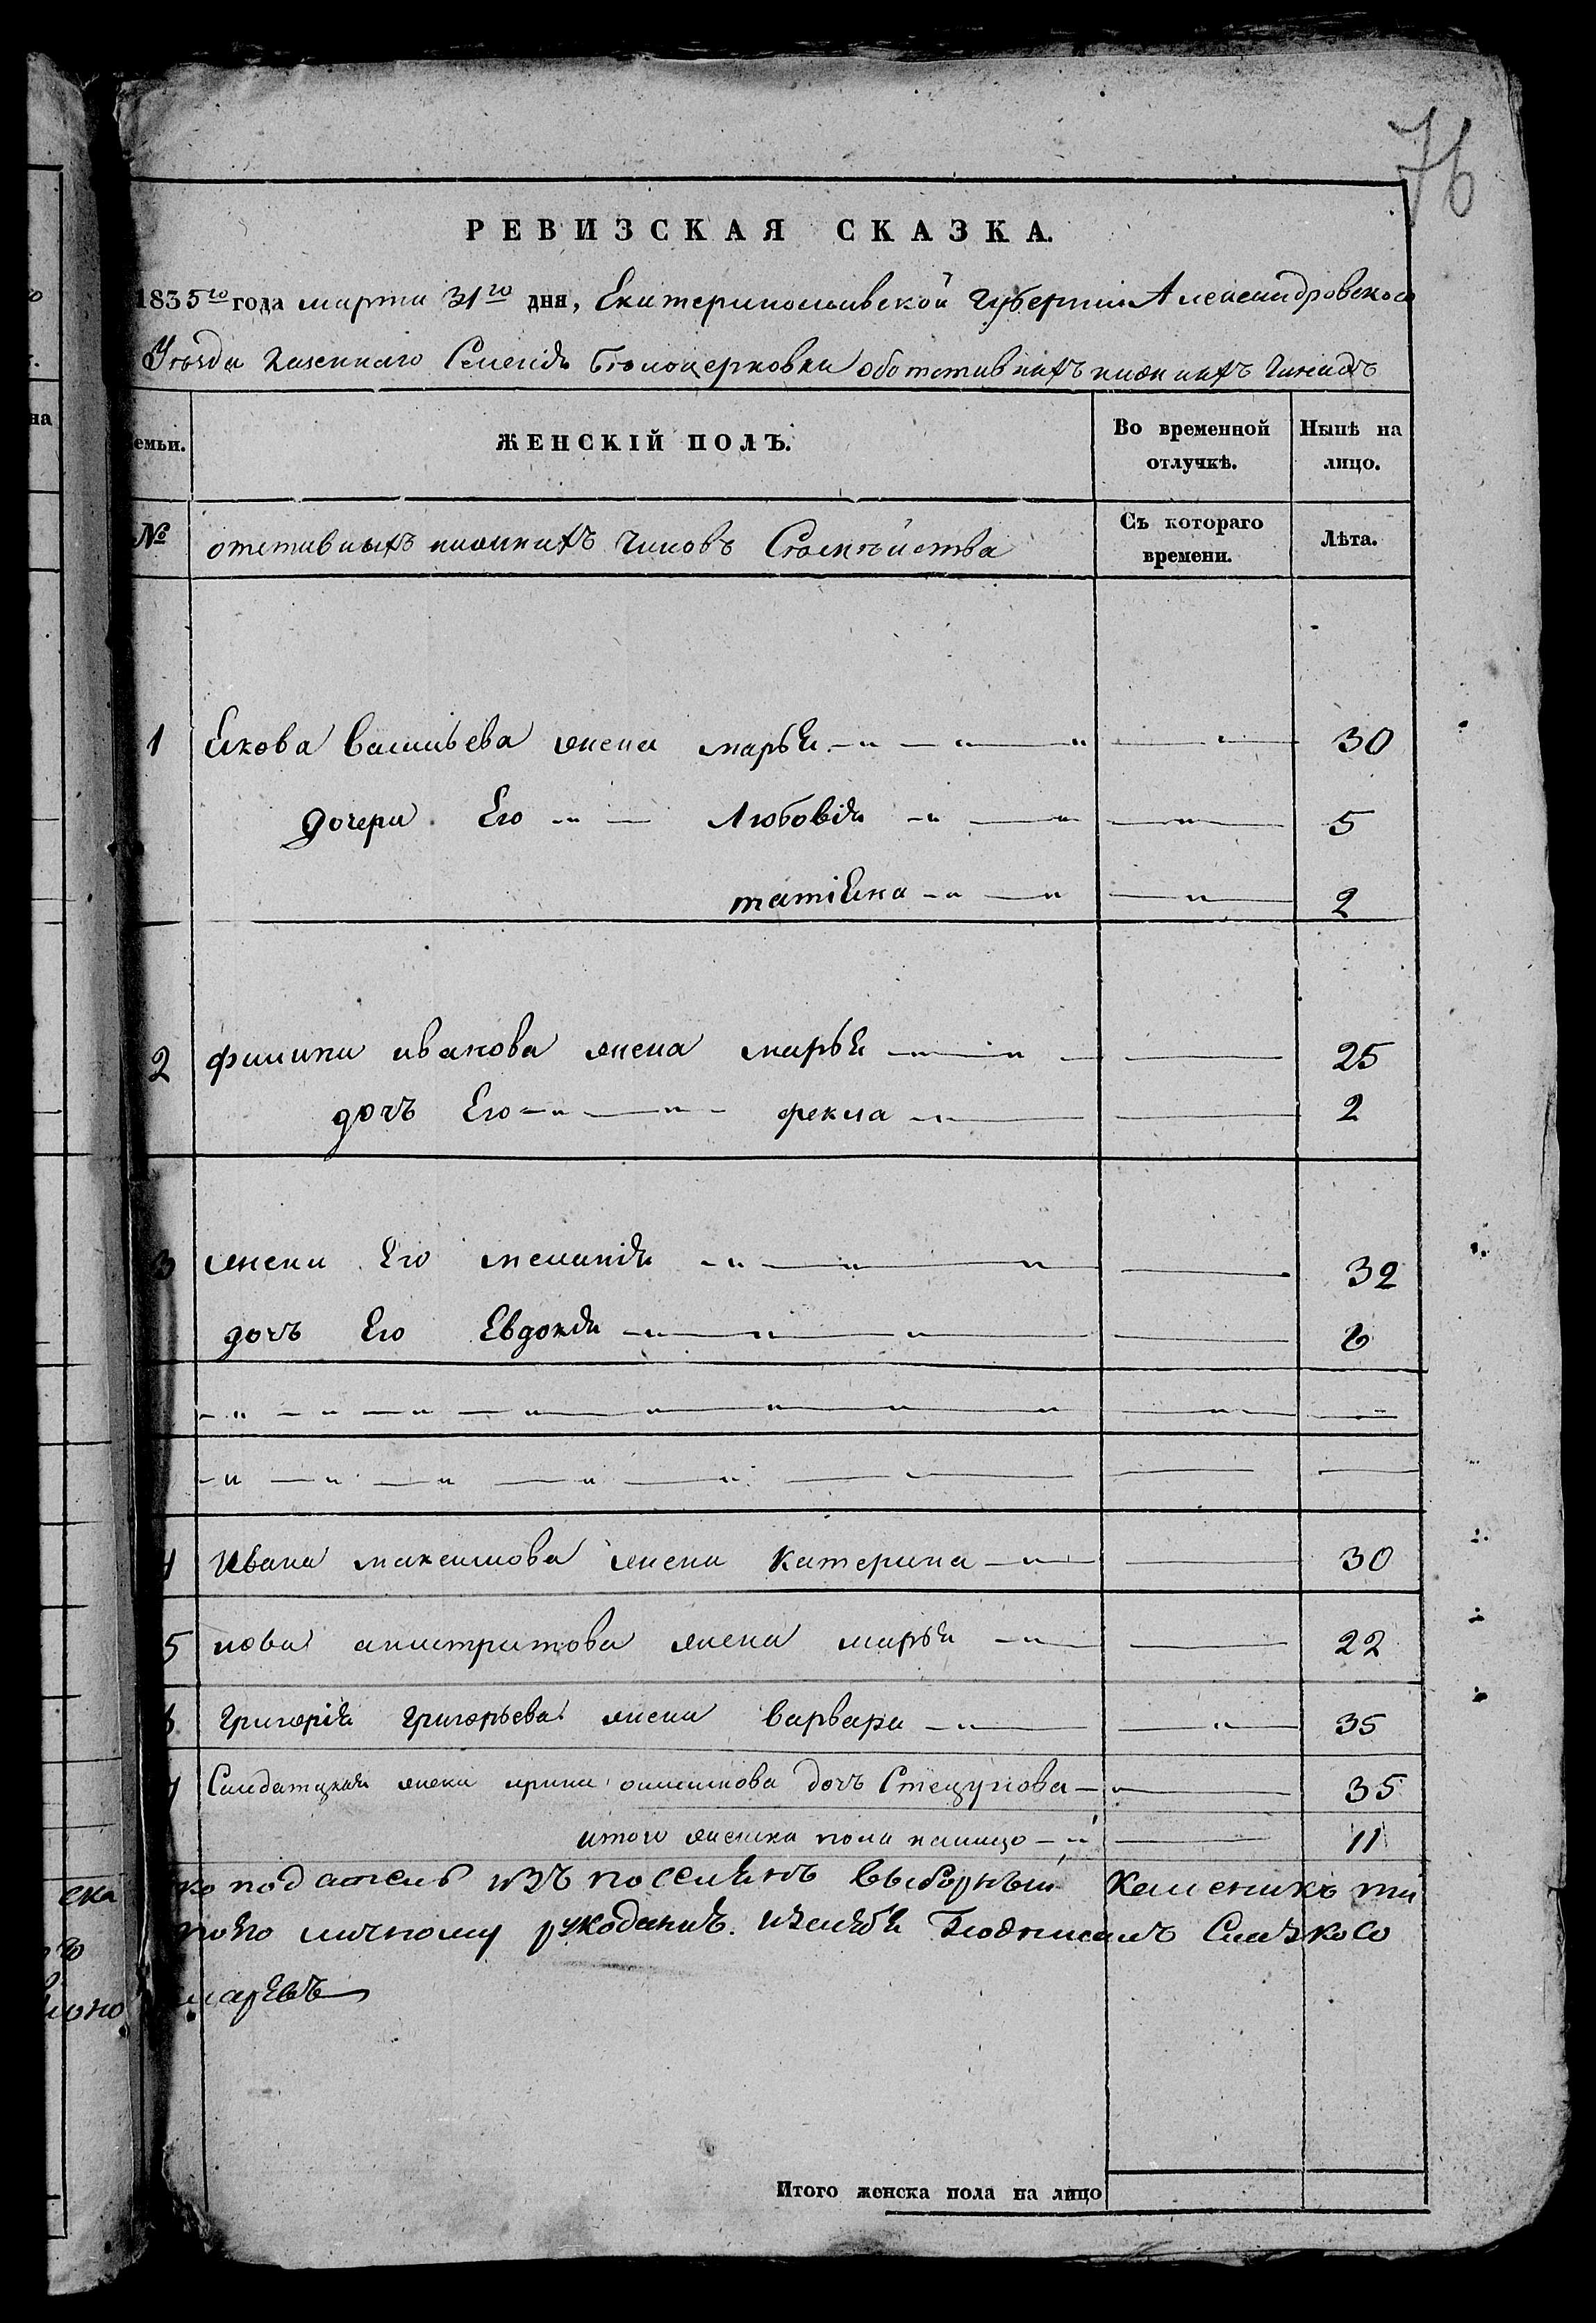 76
РЕВИЗСКАЯ СКАЗКА.
1835го года марта 31го дня, Екатеринославской Губернии Александровскаго
Уезда казеннаго Селения Белоцерковки обо тставнихъ нижнихъ Чинахъ
емьи.
ЖЕНСКІЙ ПОЛЪ.
Во временной отлучкѣ.
Нынѣ на лицо.
№
отставныхъ нижнихъ Чиновъ Семейства
Съ котораго времени.
Лѣта.
1 Якова Васильева жена марья 30
дочери Его Любовія 5
татіяна 2
2 филипа иванова жена марья 25
дочъ Его фекла 2
3 жена Его меланія 32
дочъ Его Евдокія 6
4 Ивана максимова жена Катерина 30
5 жена марья 22
6 Григорія Григорьева жена варвара 35
7 Салдатская жена ирина дочъ Стецунова 35
итого женска пола налицо 11
податель изъ поселянъ выборный
личному подписалъ
Итого женска пола на лицо